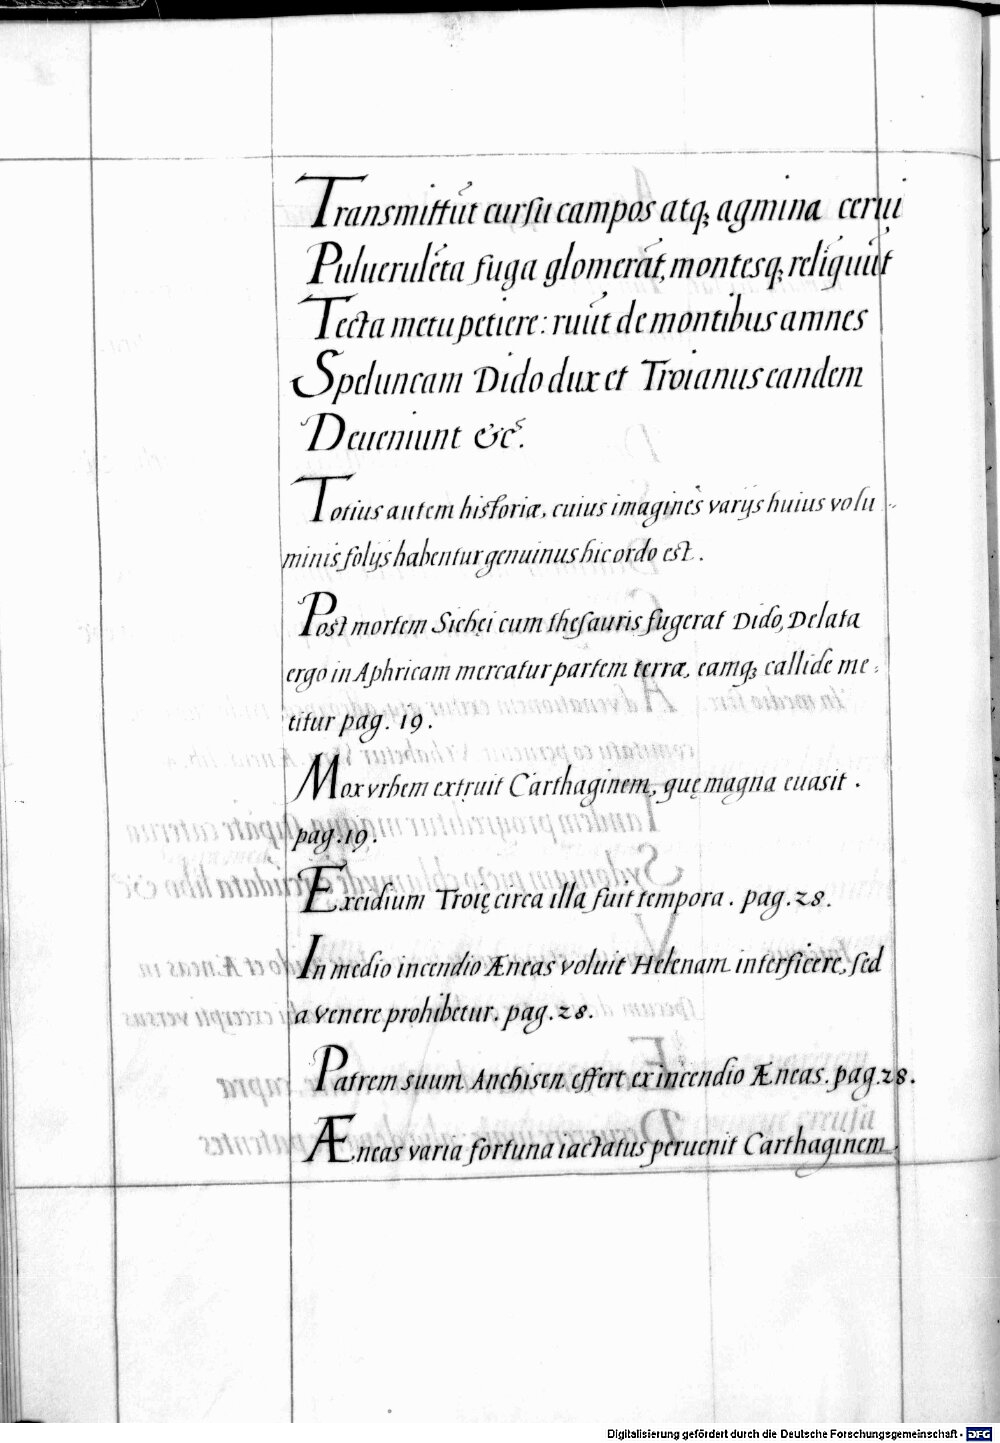 Transmittũt cursu campos atq; agmina cerui
Puluerulẽta fuga glomerãt, montesq; relĩquũt
Tecta metu petiere: ruũt de montibus amnes
Speluncam Dido dux et Troianus eandem
Deueniunt &c.
Totius autem historiæ, cuius imagines varijs huius volu
minis folijs habentur genuinus hic ordo est.
Post mortem Sichęi cum thesauris fugerat Dido, Delata
ergo in Aphricam mercatur partem terræ, eamq; callide me-
titur pag. 19.
Mox vrbem extruit Carthaginem, quę magna euasit.
pag. 19.
Excidium Troię circa illa fuit tempora. pag. 28.
In medio incendio Æneas voluit Helenam interficere, sed
a Venere prohibetur. pag. 28.
Patrem suum Anchisen effert ex incendio Æneas. pag. 28.
Æneas varia fortuna iactatus peruenit Carthaginem.
Digitalisierung gefördert durch die Deutsche Forschungsgemeinschaft - DFG